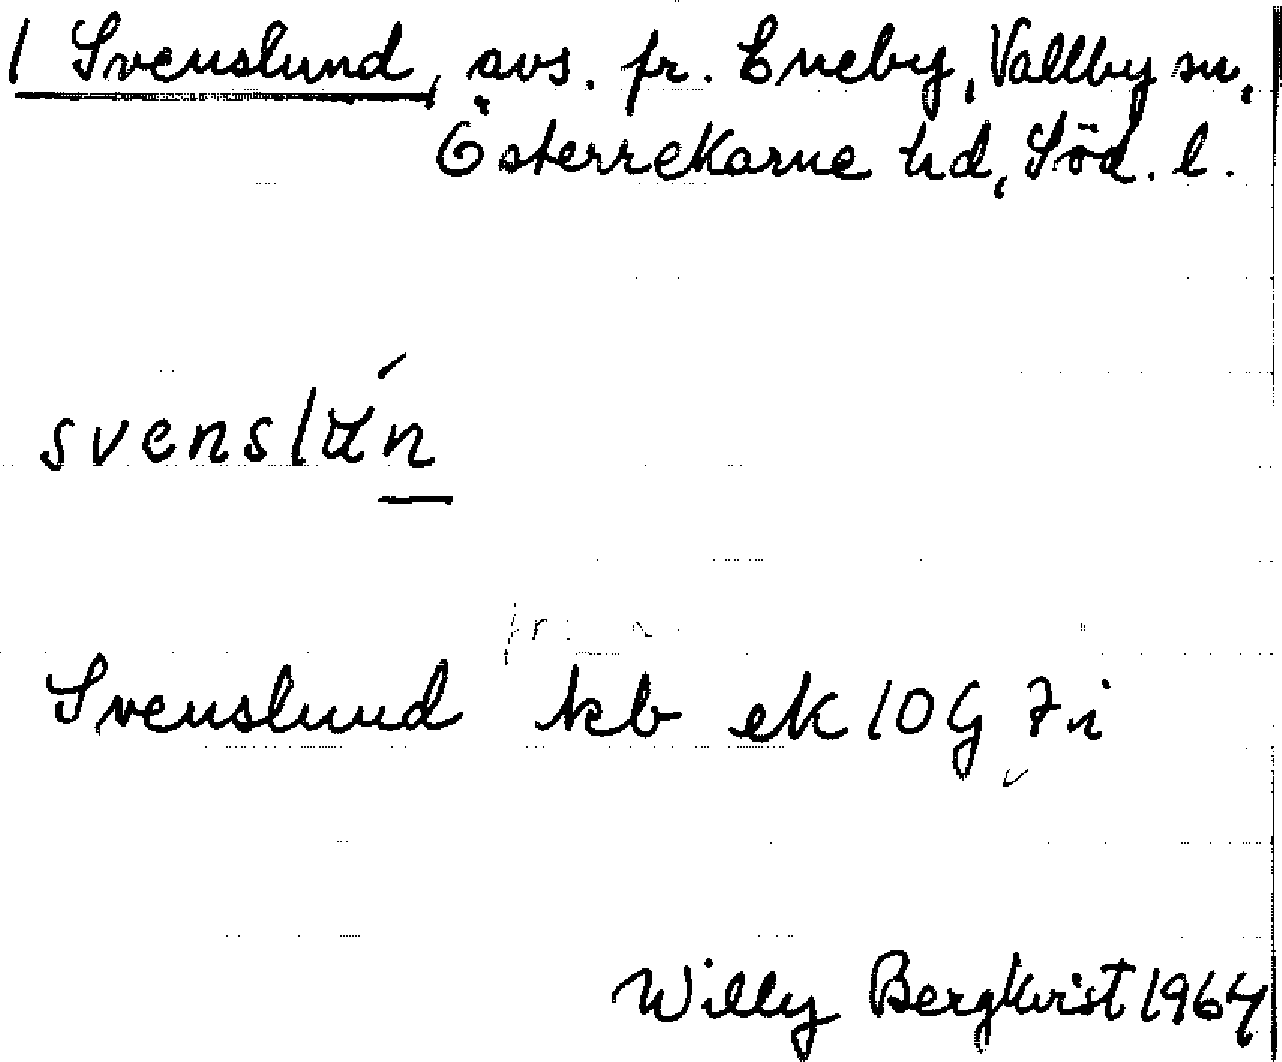 1 Svenslund, avs. fr. Eneby, Vallby sn,
Österrekarne hd, Söd. l.
svenslún
Svenslund kb ek 10G 7i
Willy Bergkvist 1964